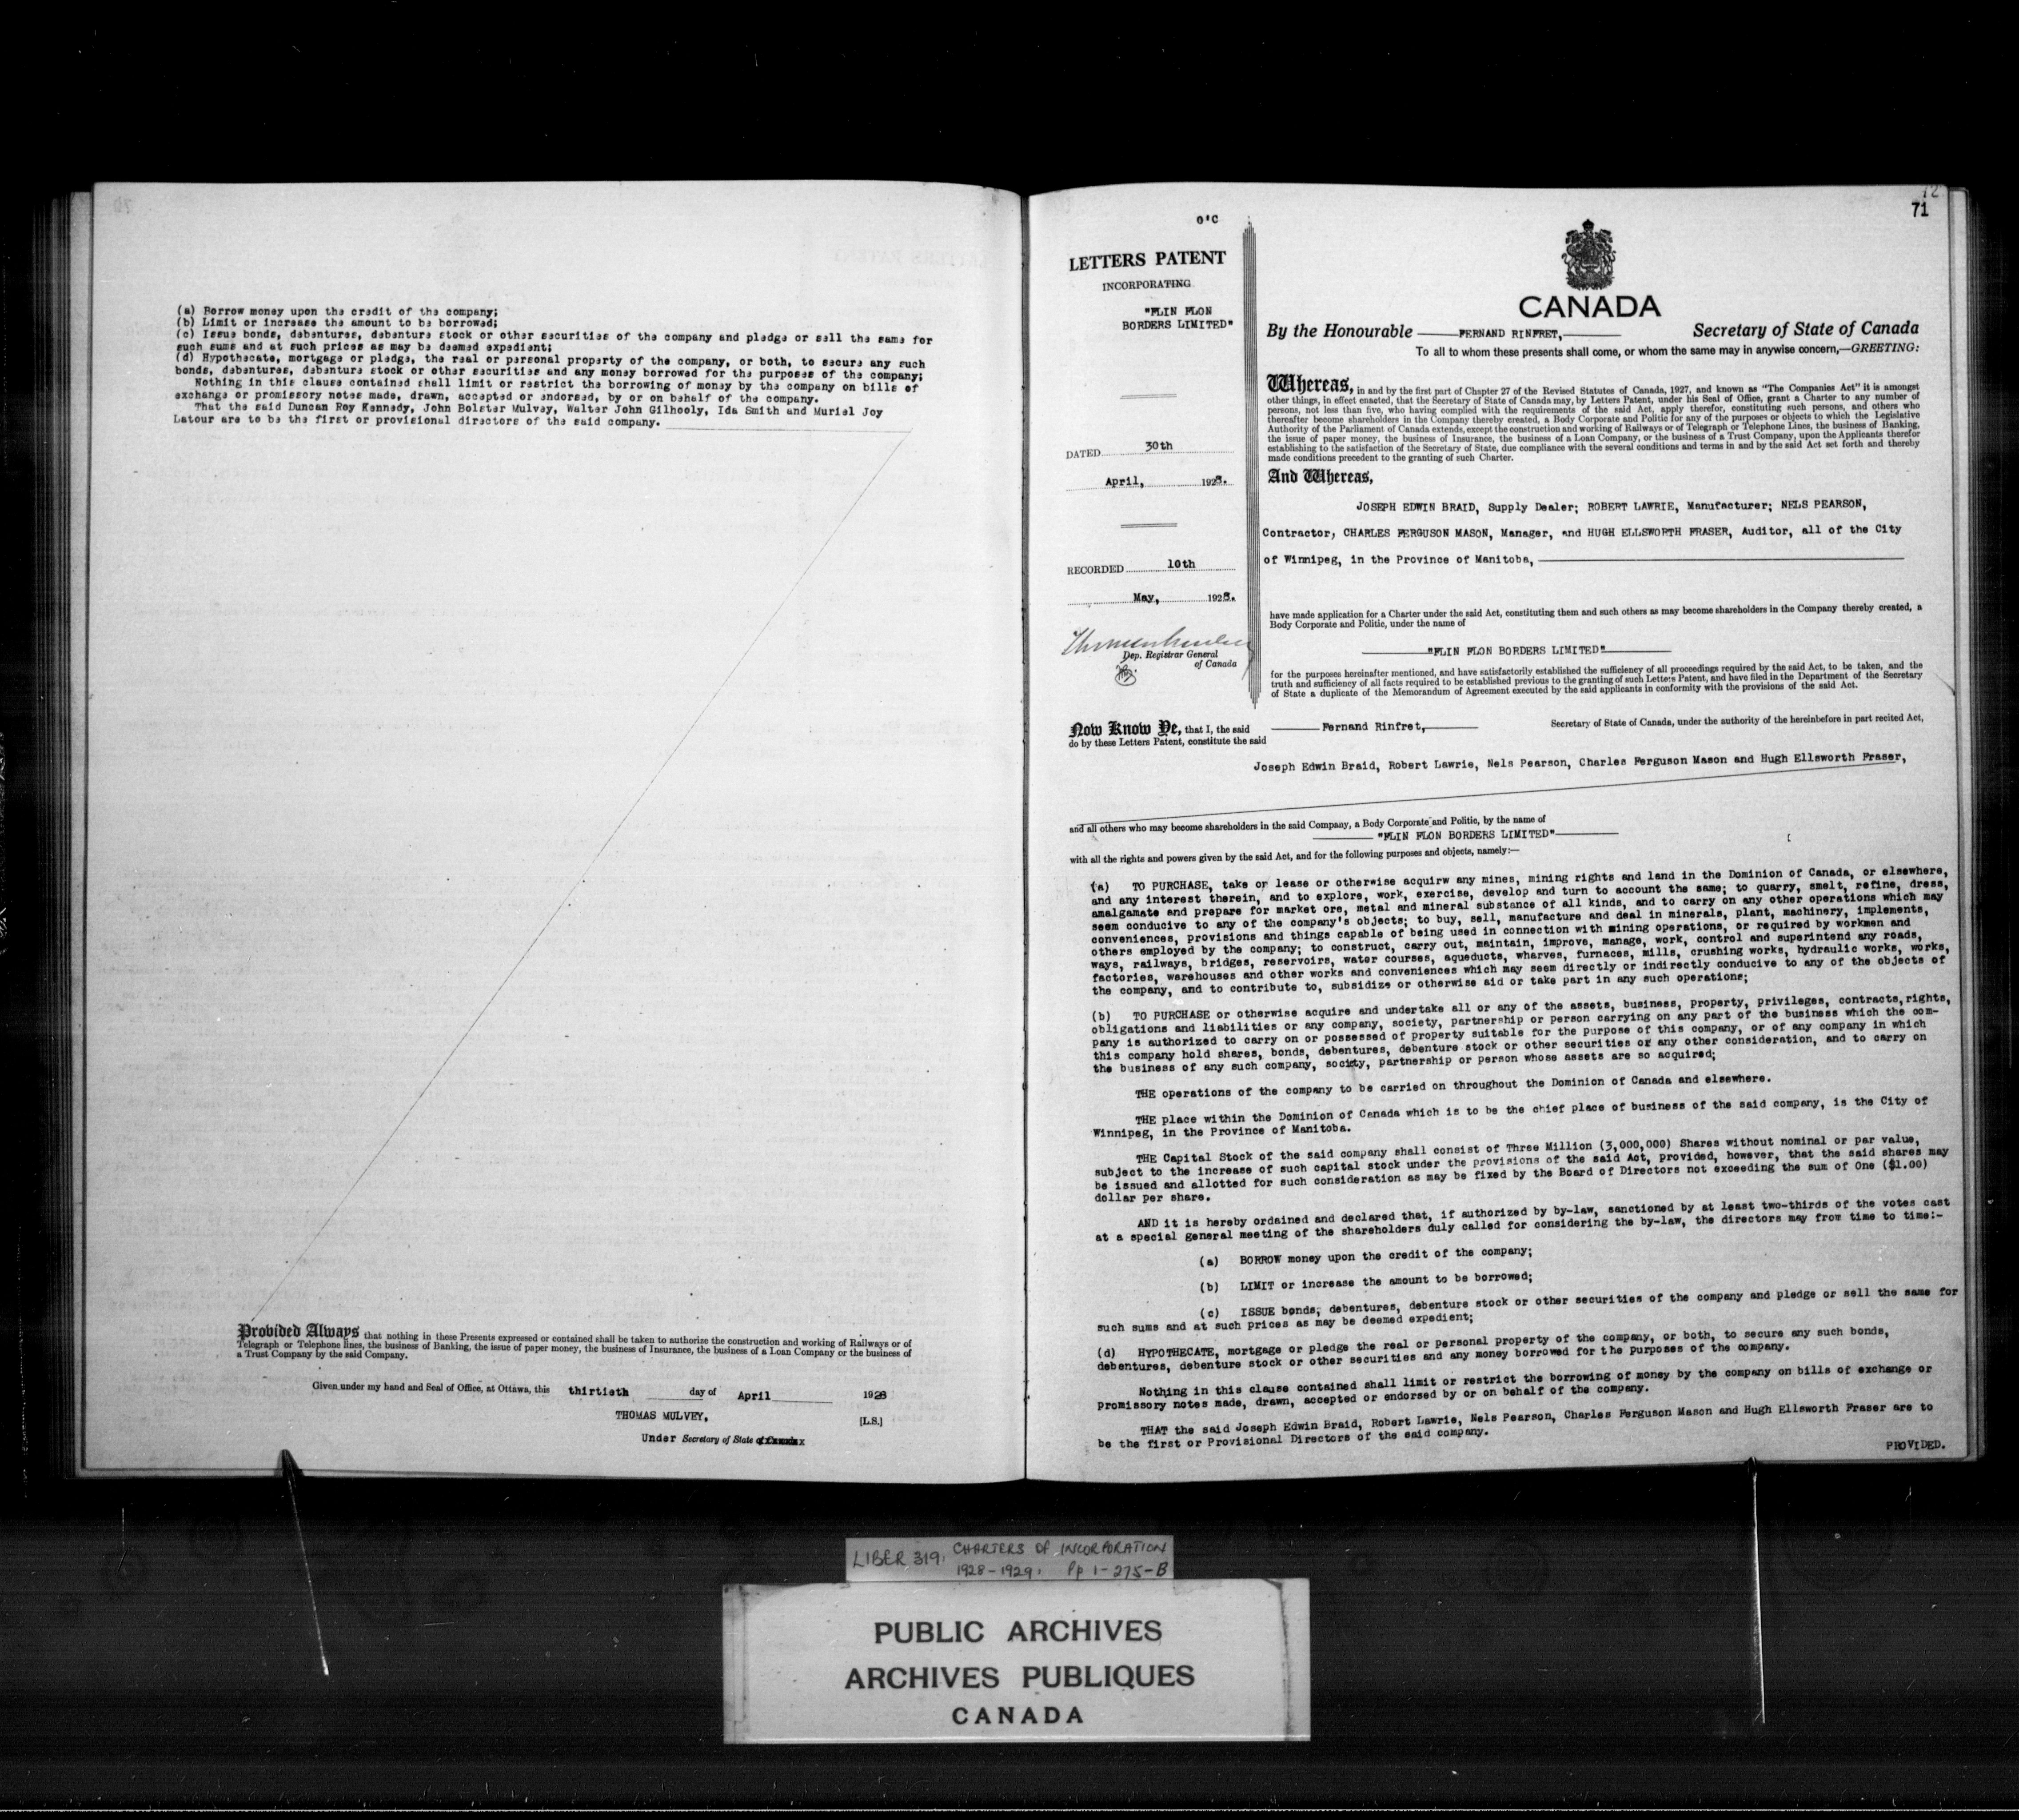 (a) Borrow money upon the credit of the company;
(b) Limit or increase the amount to be borrowed;
(c) Issue bonds, debentures, debenture stock or other securities of the company and pledge or sell the same for
such sums and at such prices as may be deemed expedient;
(d) Hypothecate, mortgage or pledge, the real or personal property of the company, or both, to secure any such
bonds, debentures, debenture stock or other securities and any money borrowed for the purposes of the company;
Nothing in this clause contained shall limit or restrict the borrowing of money by the company on bills of
exchange or promissory notes made, drawn, accepted or endorsed, by or on behalf of the company.
That the said Duncan Roy Kennedy, John Bolster Mulvey, Walter John Gilhooly, Ida Smith and Muriel Joy
Latour are to be the first or provisional directors of the said company.
Provided Always that nothing in these Presents expressed or contained shall be taken to authorize the construction and working of Railways or of
Telegraph or Telephone lines, the business of Banking, the issue of paper money, the business of Insurance, the business of a Loan Company or the business of
a Trust Company by the said Company.
Given under my hand and Seal of Office, at Ottawa, this thirtieth day of April 1928
THOMAS MULVEY, [L.S.]
Under Secretary of State
72
71
O'C
LETTERS PATENT
INCORPORATING
"FLIN FLON
BORDERS LIMITED"
DATED 30th
April, 1928.
RECORDED 10th
May, 1928.
Dep. Registrar General
of Canada
CANADA
By the Honourable FERNAND RINFRET, Secretary of State of Canada
To all to whom these presents shall come, or whom the same may in anywise concern,—GREETING:
Whereas, in and by the first part of Chapter 27 of the Revised Statutes of Canada, 1927, and known as "The Companies Act" it is amongst
other things, in effect enacted, that the Secretary of State of Canada may, by Letters Patent, under his Seal of Office, grant a Charter to any number of
persons, not less than five, who having complied with the requirements of the said Act, apply therefor, constituting such persons, and others who
thereafter become shareholders in the Company thereby created, a Body Corporate and Politic for any of the purposes or objects to which the Legislative
Authority of the Parliament of Canada extends, except the construction and working of Railways or of Telegraph or Telephone Lines, the business of Banking,
the issue of paper money, the business of Insurance, the business of a Loan Company, or the business of a Trust Company, upon the Applicants therefor
establishing to the satisfaction of the Secretary of State, due compliance with the several conditions and terms in and by the said Act set forth and thereby
made conditions precedent to the granting of such Charter.
And Whereas,
JOSEPH EDWIN BRAID, Supply Dealer; ROBERT LAWRIE, Manufacturer; NELS PEARSON,
Contractor, CHARLES FERGUSON MASON, Manager, and HUGH ELLSWORTH FRASER, Auditor, all of the City
of Winnipeg, in the Province of Manitoba,
have made application for a Charter under the said Act, constituting them and such others as may become shareholders in the Company thereby created, a
Body Corporate and Politic, under the name of
"FLIN FLON BORDERS LIMITED"
for the purposes hereinafter mentioned, and have satisfactorily established the sufficiency of all proceedings required by the said Act, to be taken, and the
truth and sufficiency of all facts required to be established previous to the granting of such Letters Patent, and have filed in the Department of the Secretary
of State a duplicate of the Memorandum of Agreement executed by the said applicants in conformity with the provisions of the said Act.
Now Know Ye, that I, the said Fernand Rinfret, Secretary of State of Canada, under the authority of the hereinbefore in part recited Act,
do by these Letters Patent, constitute the said
Joseph Edwin Braid, Robert Lawrie, Nels Pearson, Charles Ferguson Mason and Hugh Ellsworth Fraser,
and all others who may become shareholders in the said Company, a Body Corporate and Politic, by the name of
"FLIN FLON BORDERS LIMITED"
with all the rights and powers given by the said Act, and for the following purposes and objects, namely:—
(a) TO PURCHASE, take or lease or otherwise acquirw any mines, mining rights and land in the Dominion of Canada, or elsewhere,
and any interest therein, and to explore, work, exercise, develop and turn to account the same; to quarry, smelt, refine, dress,
amalgamate and prepare for market ore, metal and mineral substance of all kinds, and to carry on any other operations which may
seem conducive to any of the company's objects; to buy, sell, manufacture and deal in minerals, plant, machinery, implements,
conveniences, provisions and things capable of being used in connection with mining operations, or required by workmen and
others employed by the company; to construct, carry out, maintain, improve, manage, work, control and superintend any roads,
ways, railways, bridges, reservoirs, water courses, aqueducts, wharves, furnaces, mills, crushing works, hydraulic works, works,
factories, warehouses and other works and conveniences which may seem directly or indirectly conducive to any of the objects of
the company, and to contribute to, subsidize or otherwise aid or take part in any such operations;
(b) TO PURCHASE or otherwise acquire and undertake all or any of the assets, business, property, privileges, contracts,rights,
obligations and liabilities or any company, society, partnership or person carrying on any part of the business which the com-
pany is authorized to carry on or possessed of property suitable for the purpose of this company, or of any company in which
this company hold shares, bonds, debentures, debenture stock or other securities or any other consideration, and to carry on
the business of any such company, society, partnership or person whose assets are so acquired;
THE operations of the company to be carried on throughout the Dominion of Canada and elsewhere.
THE place within the Dominion of Canada which is to be the chief place of business of the said company, is the City of
Winnipeg, in the Province of Manitoba.
THE Capital Stock of the said company shall consist of Three Million (3,000,000) Shares without nominal or par value,
subject to the increase of such capital stock under the provisions of the said Act, provided, however, that the said shares may
be issued and allotted for such consideration as may be fixed by the Board of Directors not exceeding the sum of One ($1.00)
dollar per share.
AND it is hereby ordained and declared that, if authorized by by-law, sanctioned by at least two-thirds of the votes cast
at a special general meeting of the shareholders duly called for considering the by-law, the directors may from time to time:-
(a) BORROW money upon the credit of the company;
(b) LIMIT or increase the amount to be borrowed;
(c) ISSUE bonds, debentures, debenture stock or other securities of the company and pledge or sell the same for
such sums and at such prices as may be deemed expedient;
(d) HYPOTHECATE, mortgage or pledge the real or personal property of the company, or both, to secure any such bonds,
debentures, debenture stock or other securities and any money borrowed for the purposes of the company.
Nothing in this clause contained shall limit or restrict the borrowing of money by the company on bills of exchange or
promissory notes made, drawn, accepted or endorsed by or on behalf of the company.
THAT the said Joseph Edwin Braid, Robert Lawrie, Nels Pearson, Charles Ferguson Mason and Hugh Ellsworth Fraser are to
be the first or Provisional Directors of the said company.
PROVIDED.
LIBER 319: CHARTERS OF INCORPORATION
1928-1929: Pp 1-275-B
PUBLIC ARCHIVES
ARCHIVES PUBLIQUES
CANADA